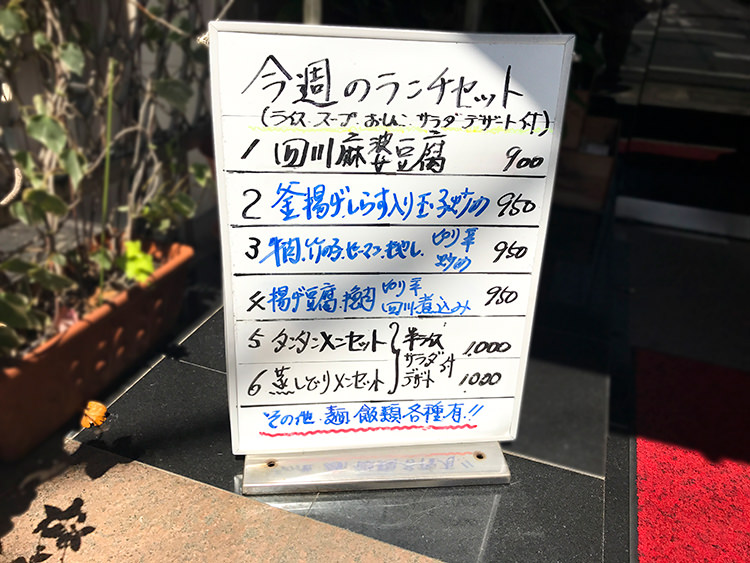 今週のランチセット
(ライス.スープ.おしんこ.サラダ.デザート付)
1 四川麻婆豆腐 900
2 釜揚げしらす入り玉子炒め 950
3 牛肉.竹の子.ピーマン 細切り炒め 950
4 揚げ豆腐.挽肉 四川煮込み 950
5 タンタンメンセット 1.000
半ライス サラダ デザート 付
6 蒸しどりメンセット 1000
その他.麺.飯類各種有!!